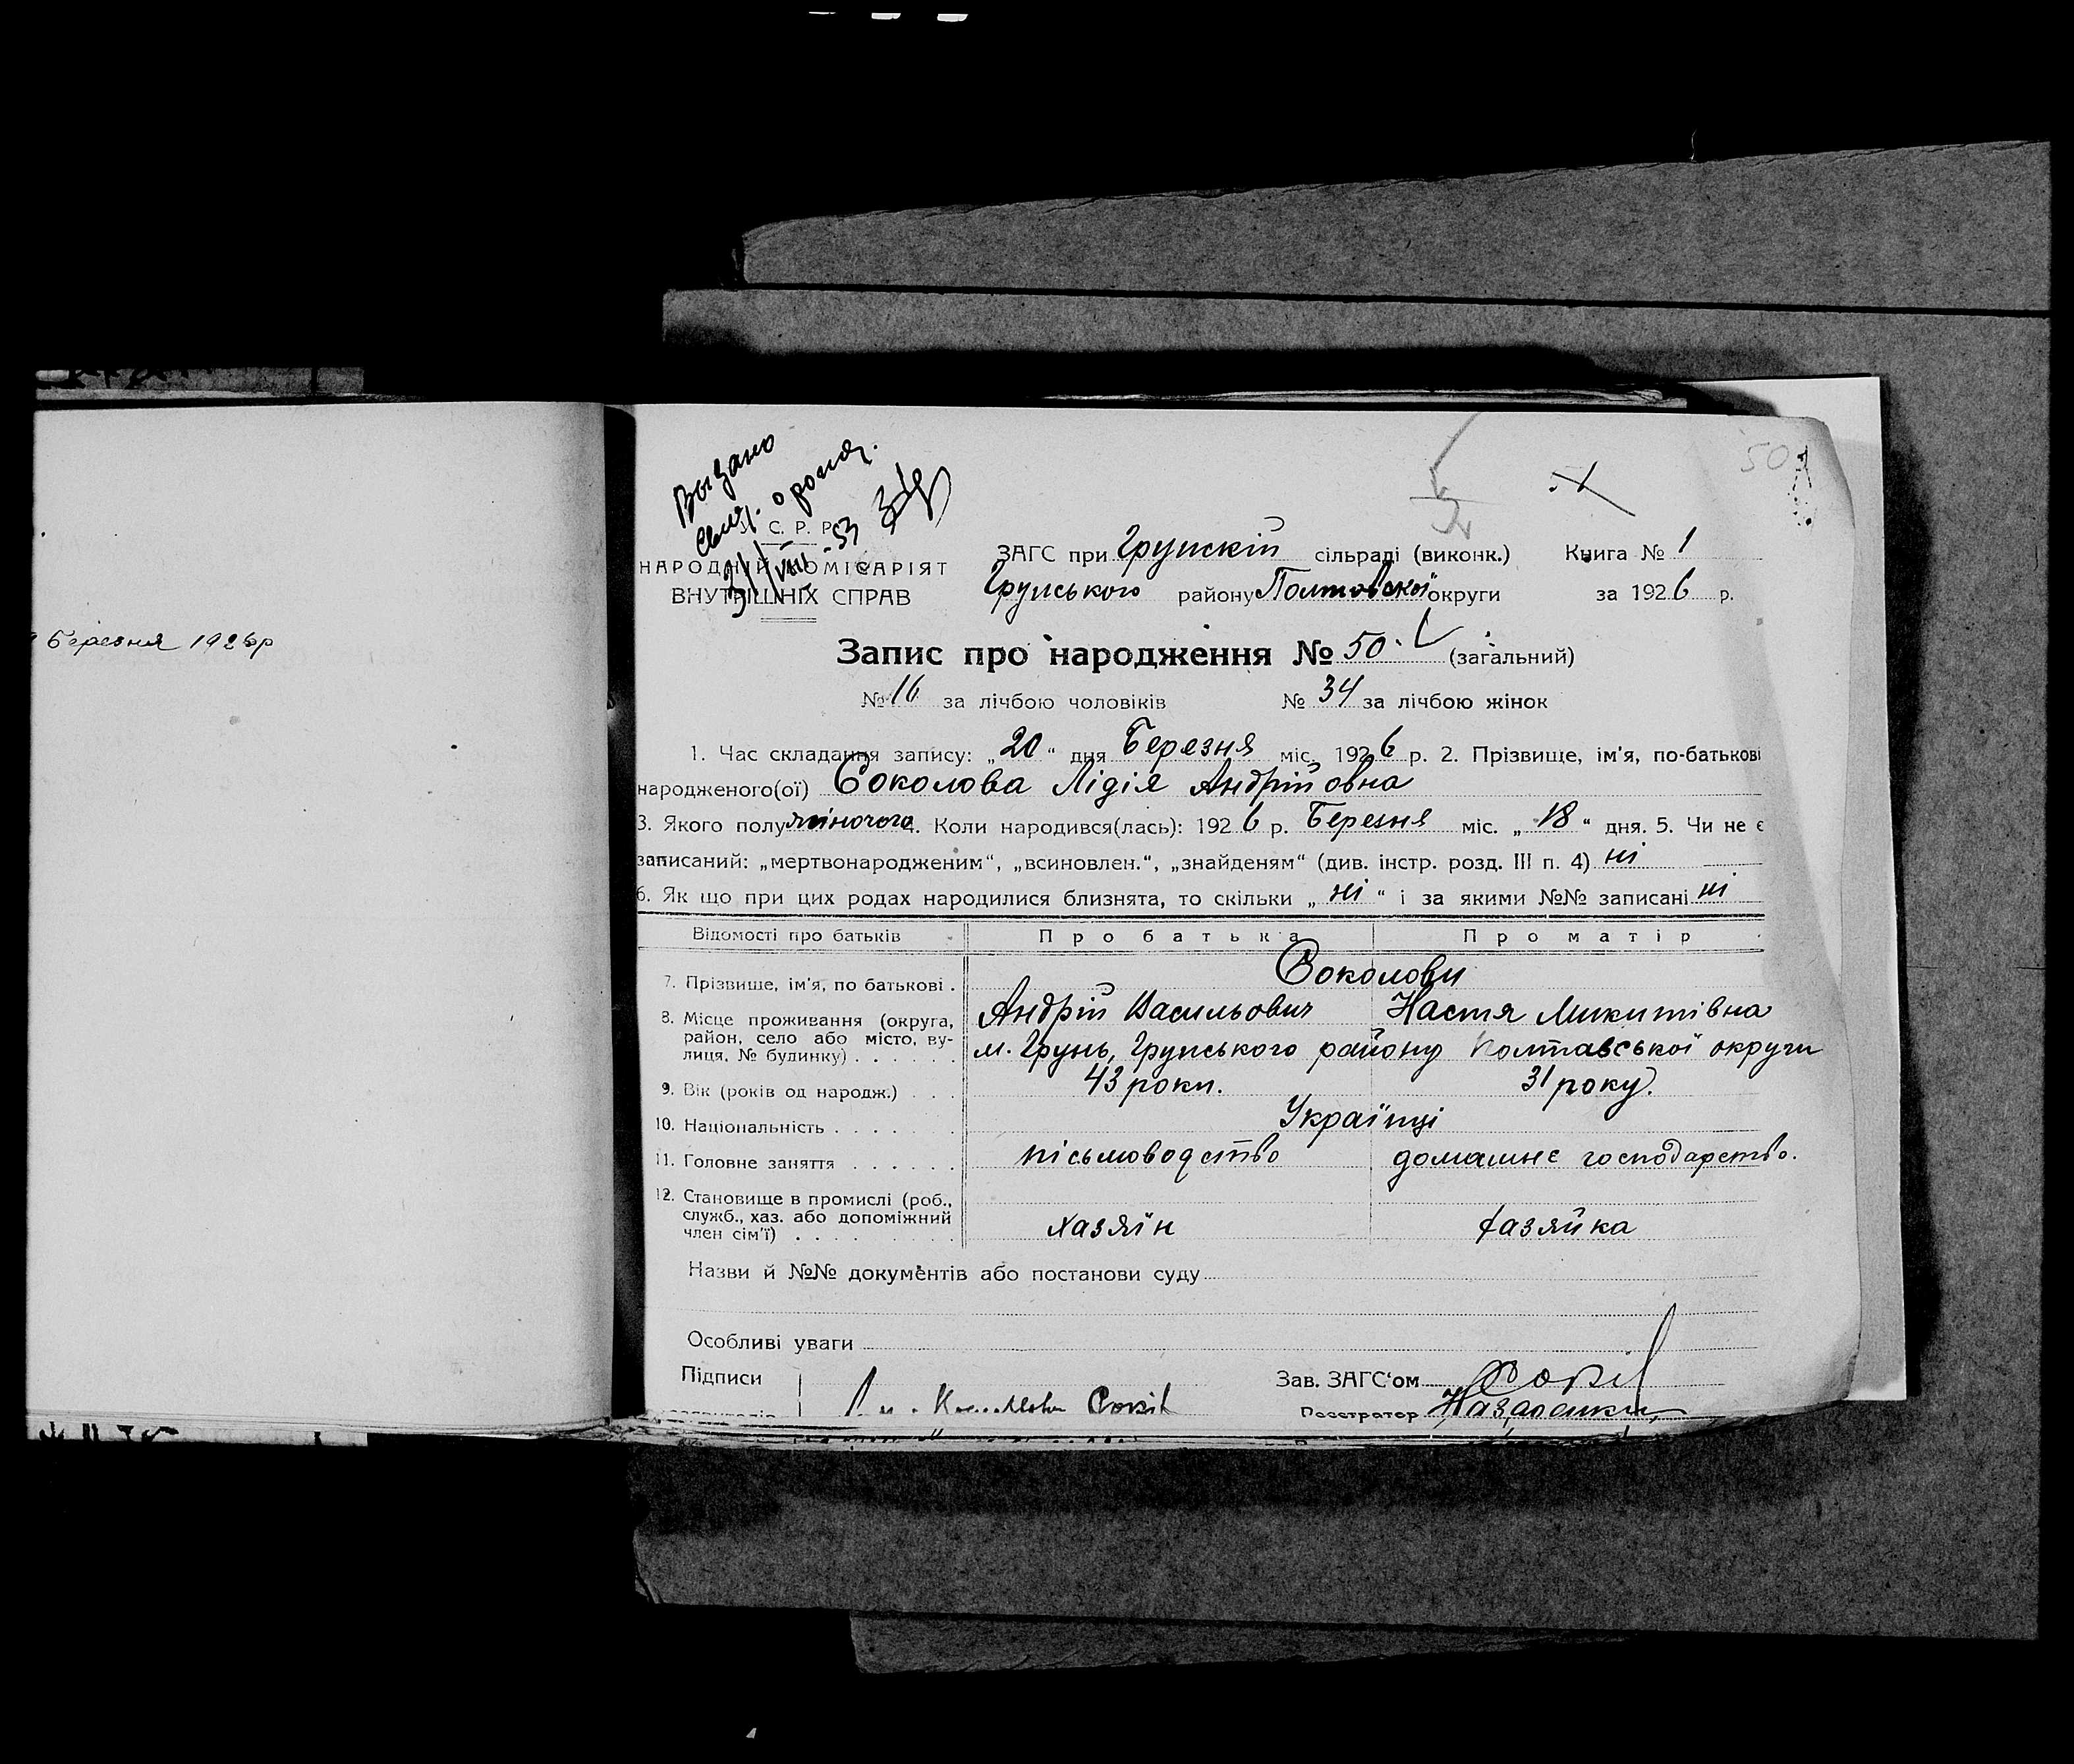 Березня 1926р
50
Выдано
свид. о рожд.
31/VIII-53
У. С. Р. Р.
НАРОДНІЙ КОМІСАРІЯТ
ВНУТРІШНІХ СПРАВ
ЗАГС при Грунскій сільраді (виконк.) Книга № 1
Грунського району Полтовської округи за 1926 р.
Запис про народження № 50. (загальний)
№ 16 за лічбою чоловіків № 34 за лічбою жінок
1. Час складання запису: „20“ дня Березня міс. 1926 р. 2. Прізвище, ім'я, по-батькові
народженого(ої) Соколова Лідія Андрійовна
3. Якого полу жіночого 4. Коли народився(лась): 1926 р. Березня міс. „18“ дня. 5. Чи не є
записаний: „мертвонародженим“, „всиновлен.“, „знайденям“ (див. інстр. розд. III п. 4) ні
6. Як що при цих родах народилися близнята, то скільки „ні“ і за якими №№ записані ні
Відомості про батьків Про батька Про матір
Соколови
7. Прізвище, ім'я, по батькові . Андрій Васильович Настя Микитівна
8. Місце проживання (округа,
район, село або місто, ву-
лиця, № будинку) . . . . . . м. Грунь, Грунського району Полтавської округи
9. Вік (років од народж.) . . . 43 роки. 31 року.
10. Національність . . . . . . Українці
11. Головне заняття . . . . . . письмоводство домашнє господарство.
12. Становище в промислі (роб.,
служб., хаз. або допоміжний
член сім'ї) . . . . . . . . . хазяїн хазяйка
Назви й №№ документів або постанови суду
Особливі уваги
Підписи Зав. ЗАГС'ом
Реєстратор